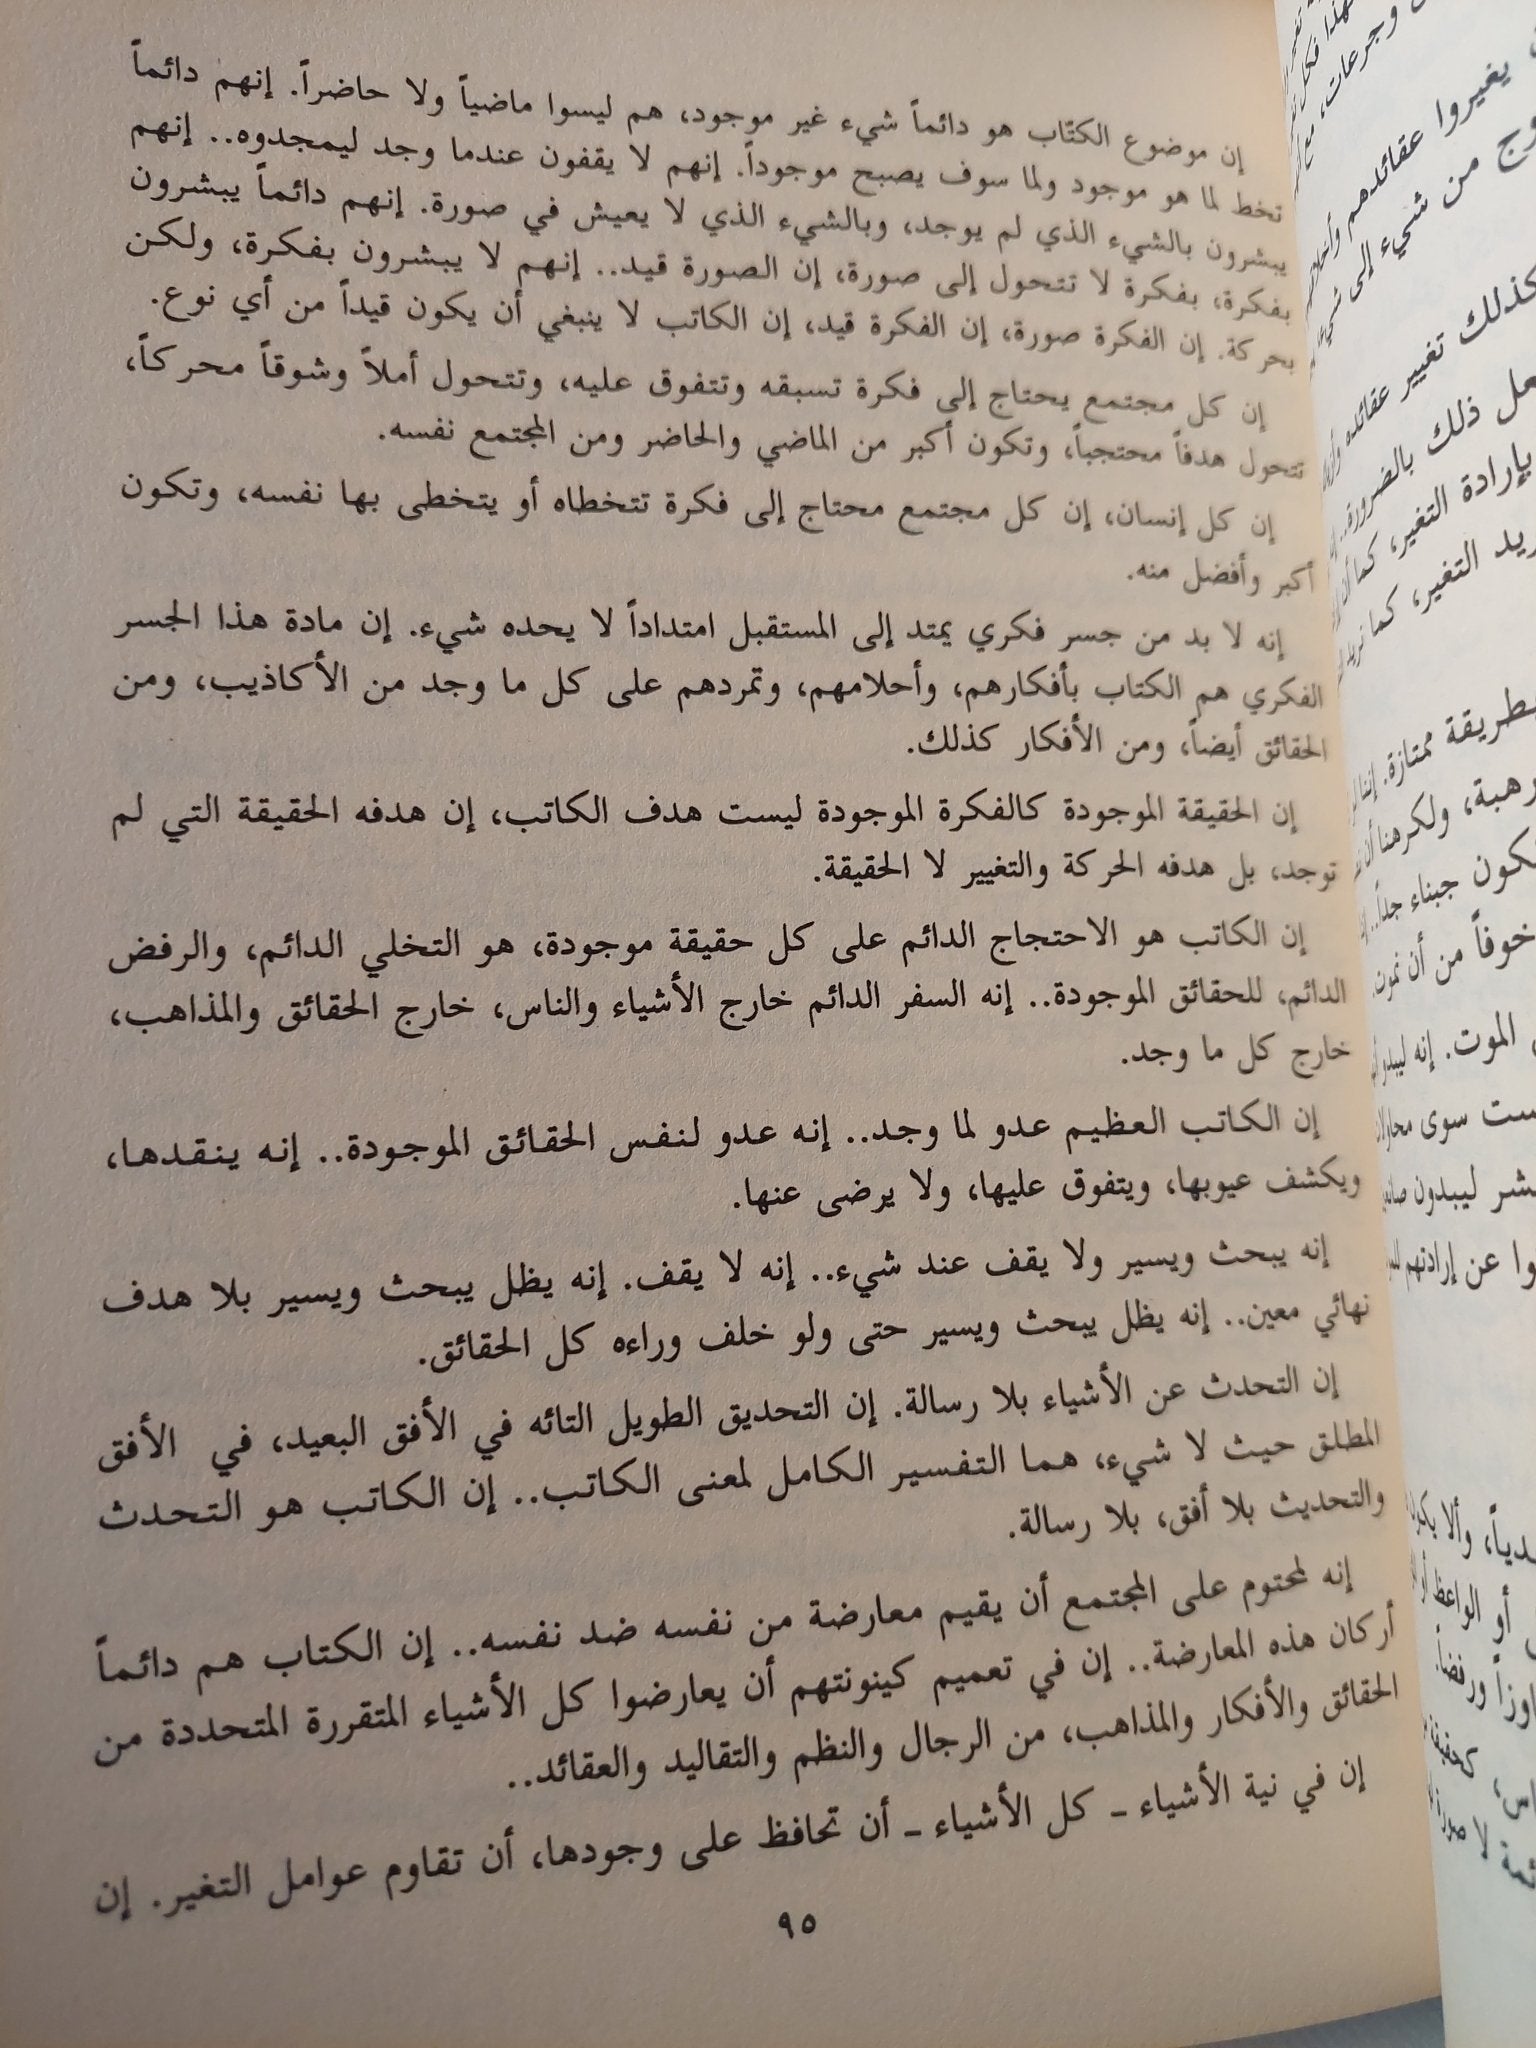 إن موضوع الكتّاب هو دائماً شيء غير موجود، هم ليسوا ماضياً ولا حاضراً. إنهم دائماً
تخط لما هو موجود ولما سوف يصبح موجوداً. إنهم لا يقفون عندما وجد ليمجدوه.. إنهم
يبشرون بالشيء الذي لم يوجد، وبالشيء الذي لا يعيش في صورة. إنهم دائماً يبشرون
بفكرة، بفكرة لا تتحول إلى صورة، إن الصورة قيد.. إنهم لا يبشرون بفكرة، ولكن
بحركة. إن الفكرة صورة، إن الفكرة قيد، إن الكاتب لا ينبغي أن يكون قيداً من أي نوع.
إن كل مجتمع يحتاج إلى فكرة تسبقه وتتفوق عليه، وتتحول أملاً وشوقاً محركاً،
تتحول هدفاً محتجباً، وتكون أكبر من الماضي والحاضر ومن المجتمع نفسه.
إن كل إنسان، إن كل مجتمع محتاج إلى فكرة تتخطاه أو يتخطى بها نفسه، وتكون
أكبر وأفضل منه.
إنه لا بد من جسر فكري يمتد إلى المستقبل امتداداً لا يحده شيء. إن مادة هذا الجسر
الفكري هم الكتاب بأفكارهم، وأحلامهم، وتمردهم على كل ما وجد من الأكاذيب، ومن
الحقائق أيضاً، ومن الأفكار كذلك.
إن الحقيقة الموجودة كالفكرة الموجودة ليست هدف الكاتب، إن هدفه الحقيقة التي لم
توجد، بل هدفه الحركة والتغيير لا الحقيقة.
إن الكاتب هو الاحتجاج الدائم على كل حقيقة موجودة، هو التخلي الدائم، والرفض
الدائم، للحقائق الموجودة.. إنه السفر الدائم خارج الأشياء والناس، خارج الحقائق والمذاهب،
خارج كل ما وجد.
إن الكاتب العظيم عدو لما وجد.. إنه عدو لنفس الحقائق الموجودة.. إنه ينقدها،
ويكشف عيوبها، ويتفوق عليها، ولا يرضى عنها.
إنه يبحث ويسير ولا يقف عند شيء.. إنه لا يقف. إنه يظل يبحث ويسير بلا هدف
نهائي معين.. إنه يظل يبحث ويسير حتى ولو خلف وراءه كل الحقائق.
إن التحدث عن الأشياء بلا رسالة. إن التحديق الطويل التائه في الأفق البعيد، في الأفق
المطلق حيث لا شيء، هما التفسير الكامل لمعنى الكاتب.. إن الكاتب هو التحدث
والتحديث بلا أفق، بلا رسالة.
إنه لمحتوم على المجتمع أن يقيم معارضة من نفسه ضد نفسه.. إن الكتاب هم دائماً
أركان هذه المعارضة.. إن في تعميم كينونتهم أن يعارضوا كل الأشياء المتقررة المتحددة من
الحقائق والأفكار والمذاهب، من الرجال والنظم والتقاليد والعقائد..
إن في نية الأشياء ـ كل الأشياء ـ أن تحافظ على وجودها، أن تقاوم عوامل التغير. إن
٩٥
وجرعات،
يغيروا عقائدهم
من شيء إلى
كذلك تغيير عقائده
ذلك بالضرورة..
بإرادة التغير، كما أن
التغير، كما نريد
بطريقة ممتازة.
ولكرهنا أن
جبناء جداً..
خوفاً من أن نموت
الموت. إنه ليبدو
سوى
ليبدون
عن إرادتهم
وألا
أو الواعظ أو
ورفضاً.
لا صورة